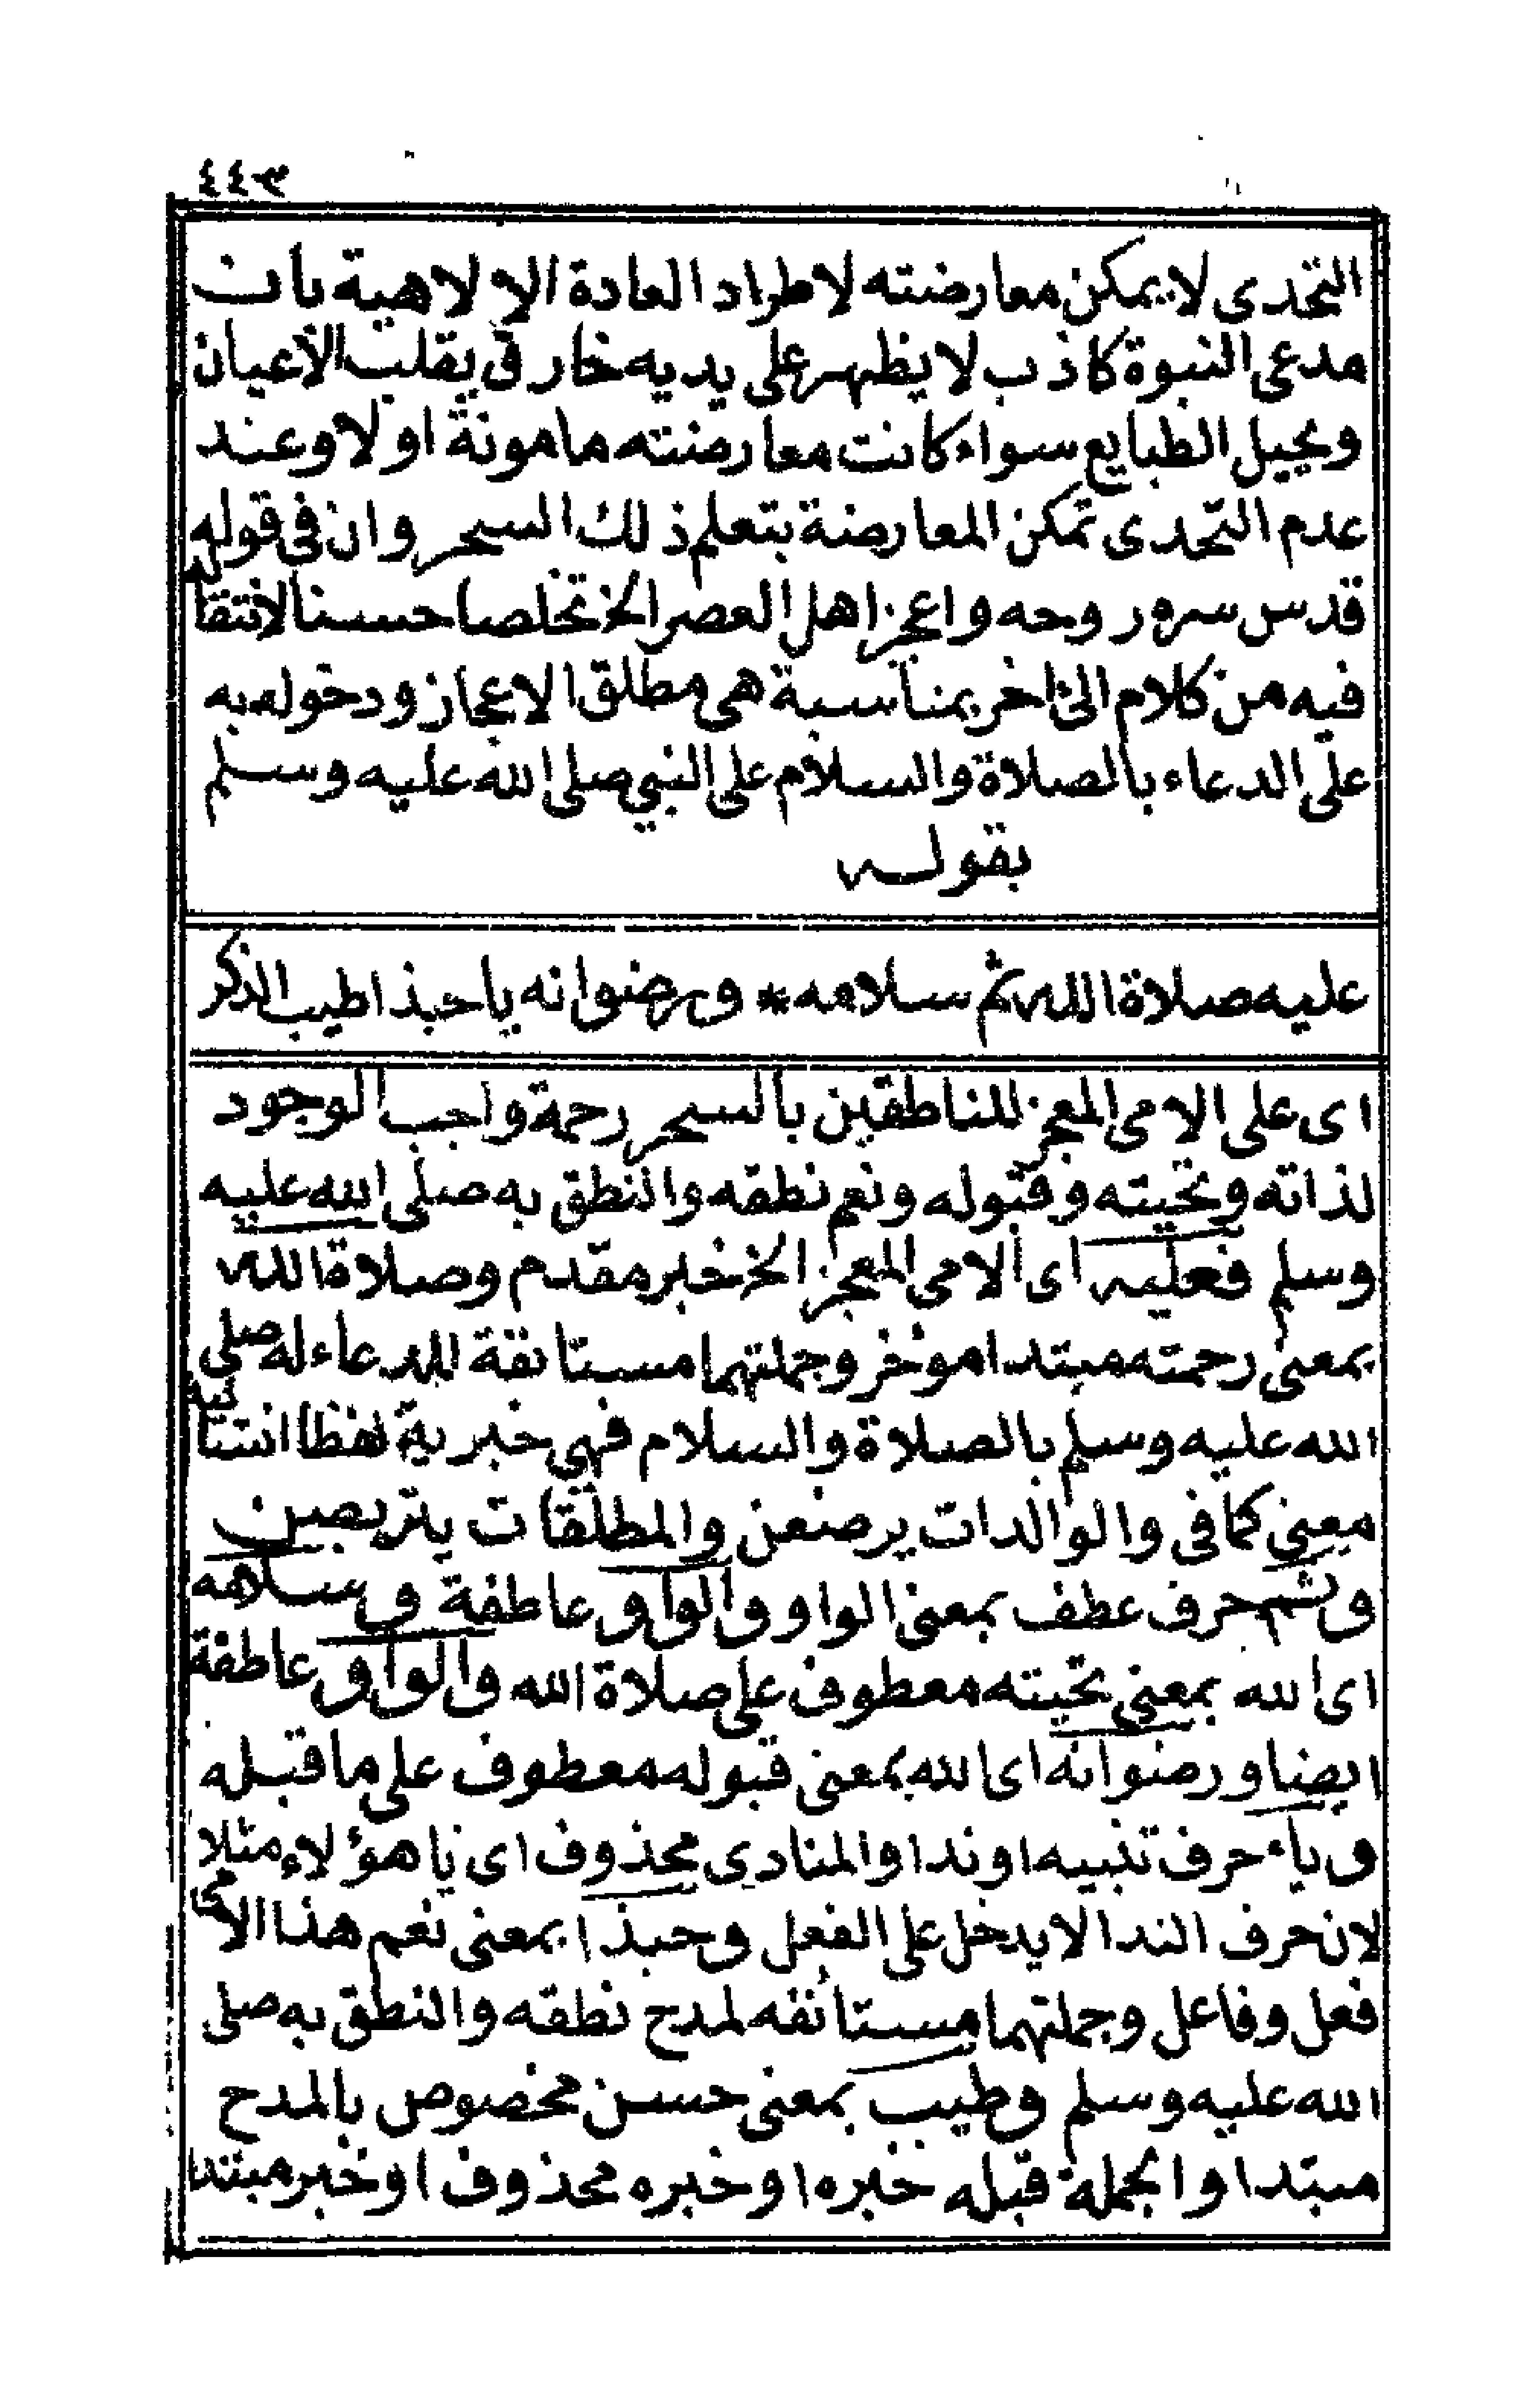 ٤٤٣
التحدى لا يمكن معارضته لاطراد العادة الالاهية بان
مدعى النبوة كاذب لا يظهر على يديه خارق يقلب الأعيان
ويحيل الطبايع سواء كانت معارضته مامونة اولا وعند
عدم التحدى تمكن المعارضة بتعلم ذلك السحر وان فى قوله
قدس سره وروحه واعجز اهل العصر الخ تخلصا حسنا لانتقاله
فيه من كلام الى اخر بمناسبة هى مطلق الاعجاز ودخوله به
على الدعاء بالصلاة والسلام على النبي صلى الله عليه وسلم
بقوله
عليه صلاة الله ثم سلامه * ورضوانه يا حبذا طيب الذكر
اى على الامى المعجز للناطقين بالسحر رحمة واجب الوجود
لذاته وتحيته وقبوله ونعم نطقه والنطق به صلى الله عليه
وسلم فعليه اى الامى المعجز الخ خبر مقدم وصلاة الله
بمعنى رحمته مبتدا موخر وجملتهما مستانفة للدعاء له صلى
الله عليه وسلم بالصلاة والسلام فهى خبرية لفظا انشائية
معنى كما فى والوالدات يرضعن والمطلقات يتربصن
وثم حرف عطف بمعنى الواو والواو عاطفة وسلامه
اى الله بمعنى تحيته معطوف على صلاة الله والواو عاطفة
ايضا ورضوانه اى الله بمعنى قبوله معطوف على ما قبله
وياء حرف تنبيه او ندا والمنادى محذوف اى يا هؤلاء مثلا
لان حرف الندا لا يدخل على الفعل وحبذا بمعنى نعم هذا الا
فعل وفاعل وجملتهما مستانفه لمدح نطقه والنطق به صلى
الله عليه وسلم وطيب بمعنى حسن مخصوص بالمدح
مبتدا والجملة قبله خبره او خبره محذوف او خبر مبتدا